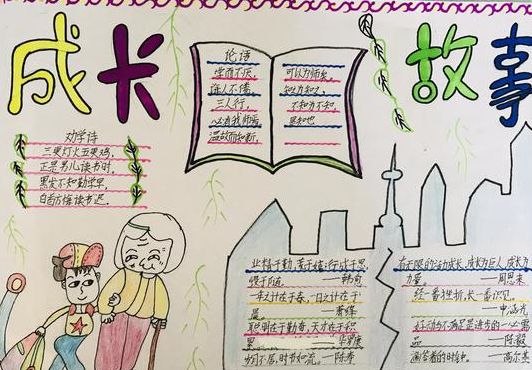 成长故事
论语
学而不厌,
诲人不倦
三人行,
必有我师焉
温故而知新,
可以为师矣
知之为知之,
不知为不知,
是知也
劝学诗
三更灯火五更鸡,
正是男儿读书时,
黑发不知勤学早,
白首方悔读书迟。
业精于勤,荒于嬉;行成于思,
毁于随 ——韩愈
一年之计在于春,一日之计在于
晨。 ——萧绎
聪明在于勤奋,天才在于积
累 ——华罗庚
时不居,时节如流。——陈寿
成长,成为巨人,成长
力量。 ——周恩来
经一番挫折,长一番识见。
——申涵光
不满足是进步的
品 ——陈毅
——高尔基